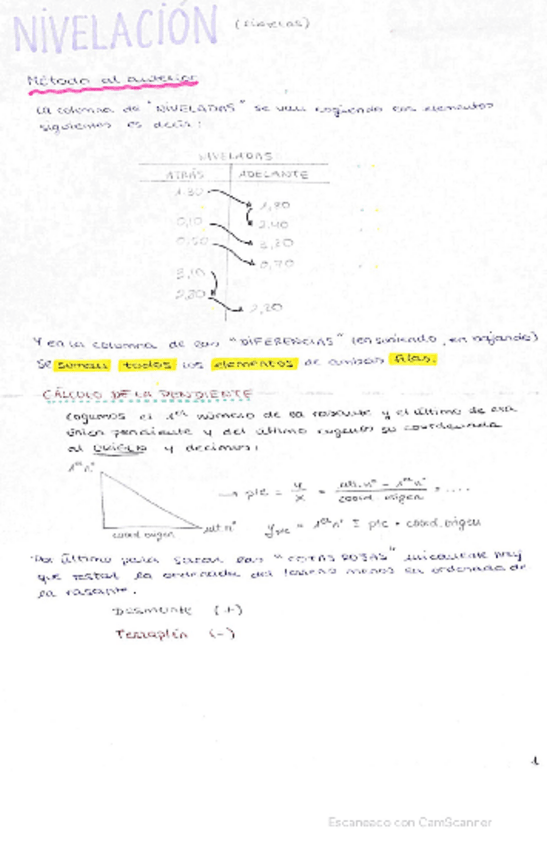 NIVELACIÓN
Método al anterior
La columna de "NIVELADAS" se van cogiendo los elementos
siguientes es decir:
NIVELADAS
ATRÁS ADELANTE
1,30
1,90
0,10 2,40
0,50 3,20
0,70
3,10
2,20
Y en la columna de las "DIFERENCIAS" (en subiendo, en bajando)
se suman todos los elementos de ambas filas.
CÁLCULO DE LA PENDIENTE
Cogemos el 1er número de la rasante y el último de esa
única pendiente y del último cogemos su coordenada
al origen y decimos:
1er nº
→ pte = y/x = últ. nº - 1er nº / coord. origen = ....
coord. origen últ nº
= 1er nº ± pte · coord. origen
Por último para sacar las "COTAS ROJAS" únicamente hay
que restar la ordenada del terreno menos la ordenada de
la rasante.
Desmonte (+)
Terraplén (-)
1
Escaneado con CamScanner